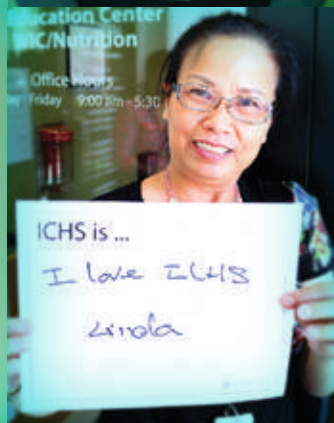 Education Center
WIC/Nutrition
Office Hours
Friday 9:00 am - 5:30
ICHS is ...
I love ICHS
Linda